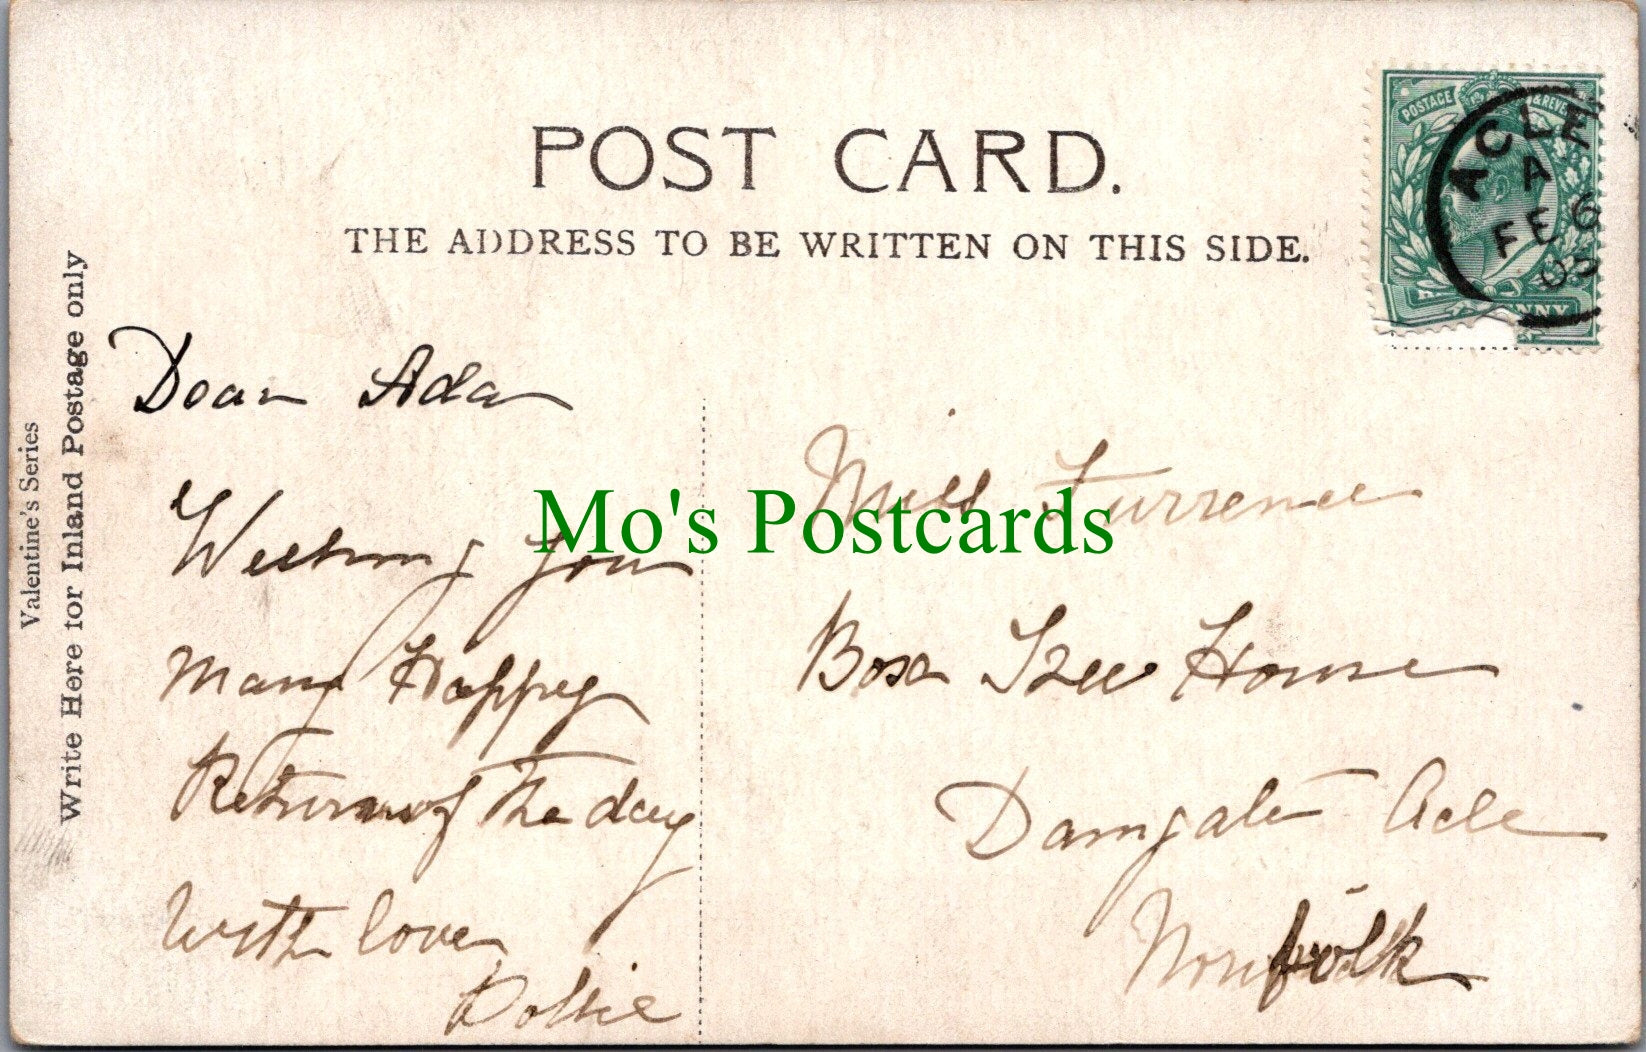 POST CARD.
THE ADDRESS TO BE WRITTEN ON THIS SIDE.
Valentine's Series
Write Here for Inland Postage only
POSTAGE & REVE
ACLE
A
FE 6
05
Dear Ada
Wishing you
many Happy
Returns of the day
With love
Dollie
Mo's Postcards
Miss Furrence
Box Tree House
Damgate Acle
Norfolk